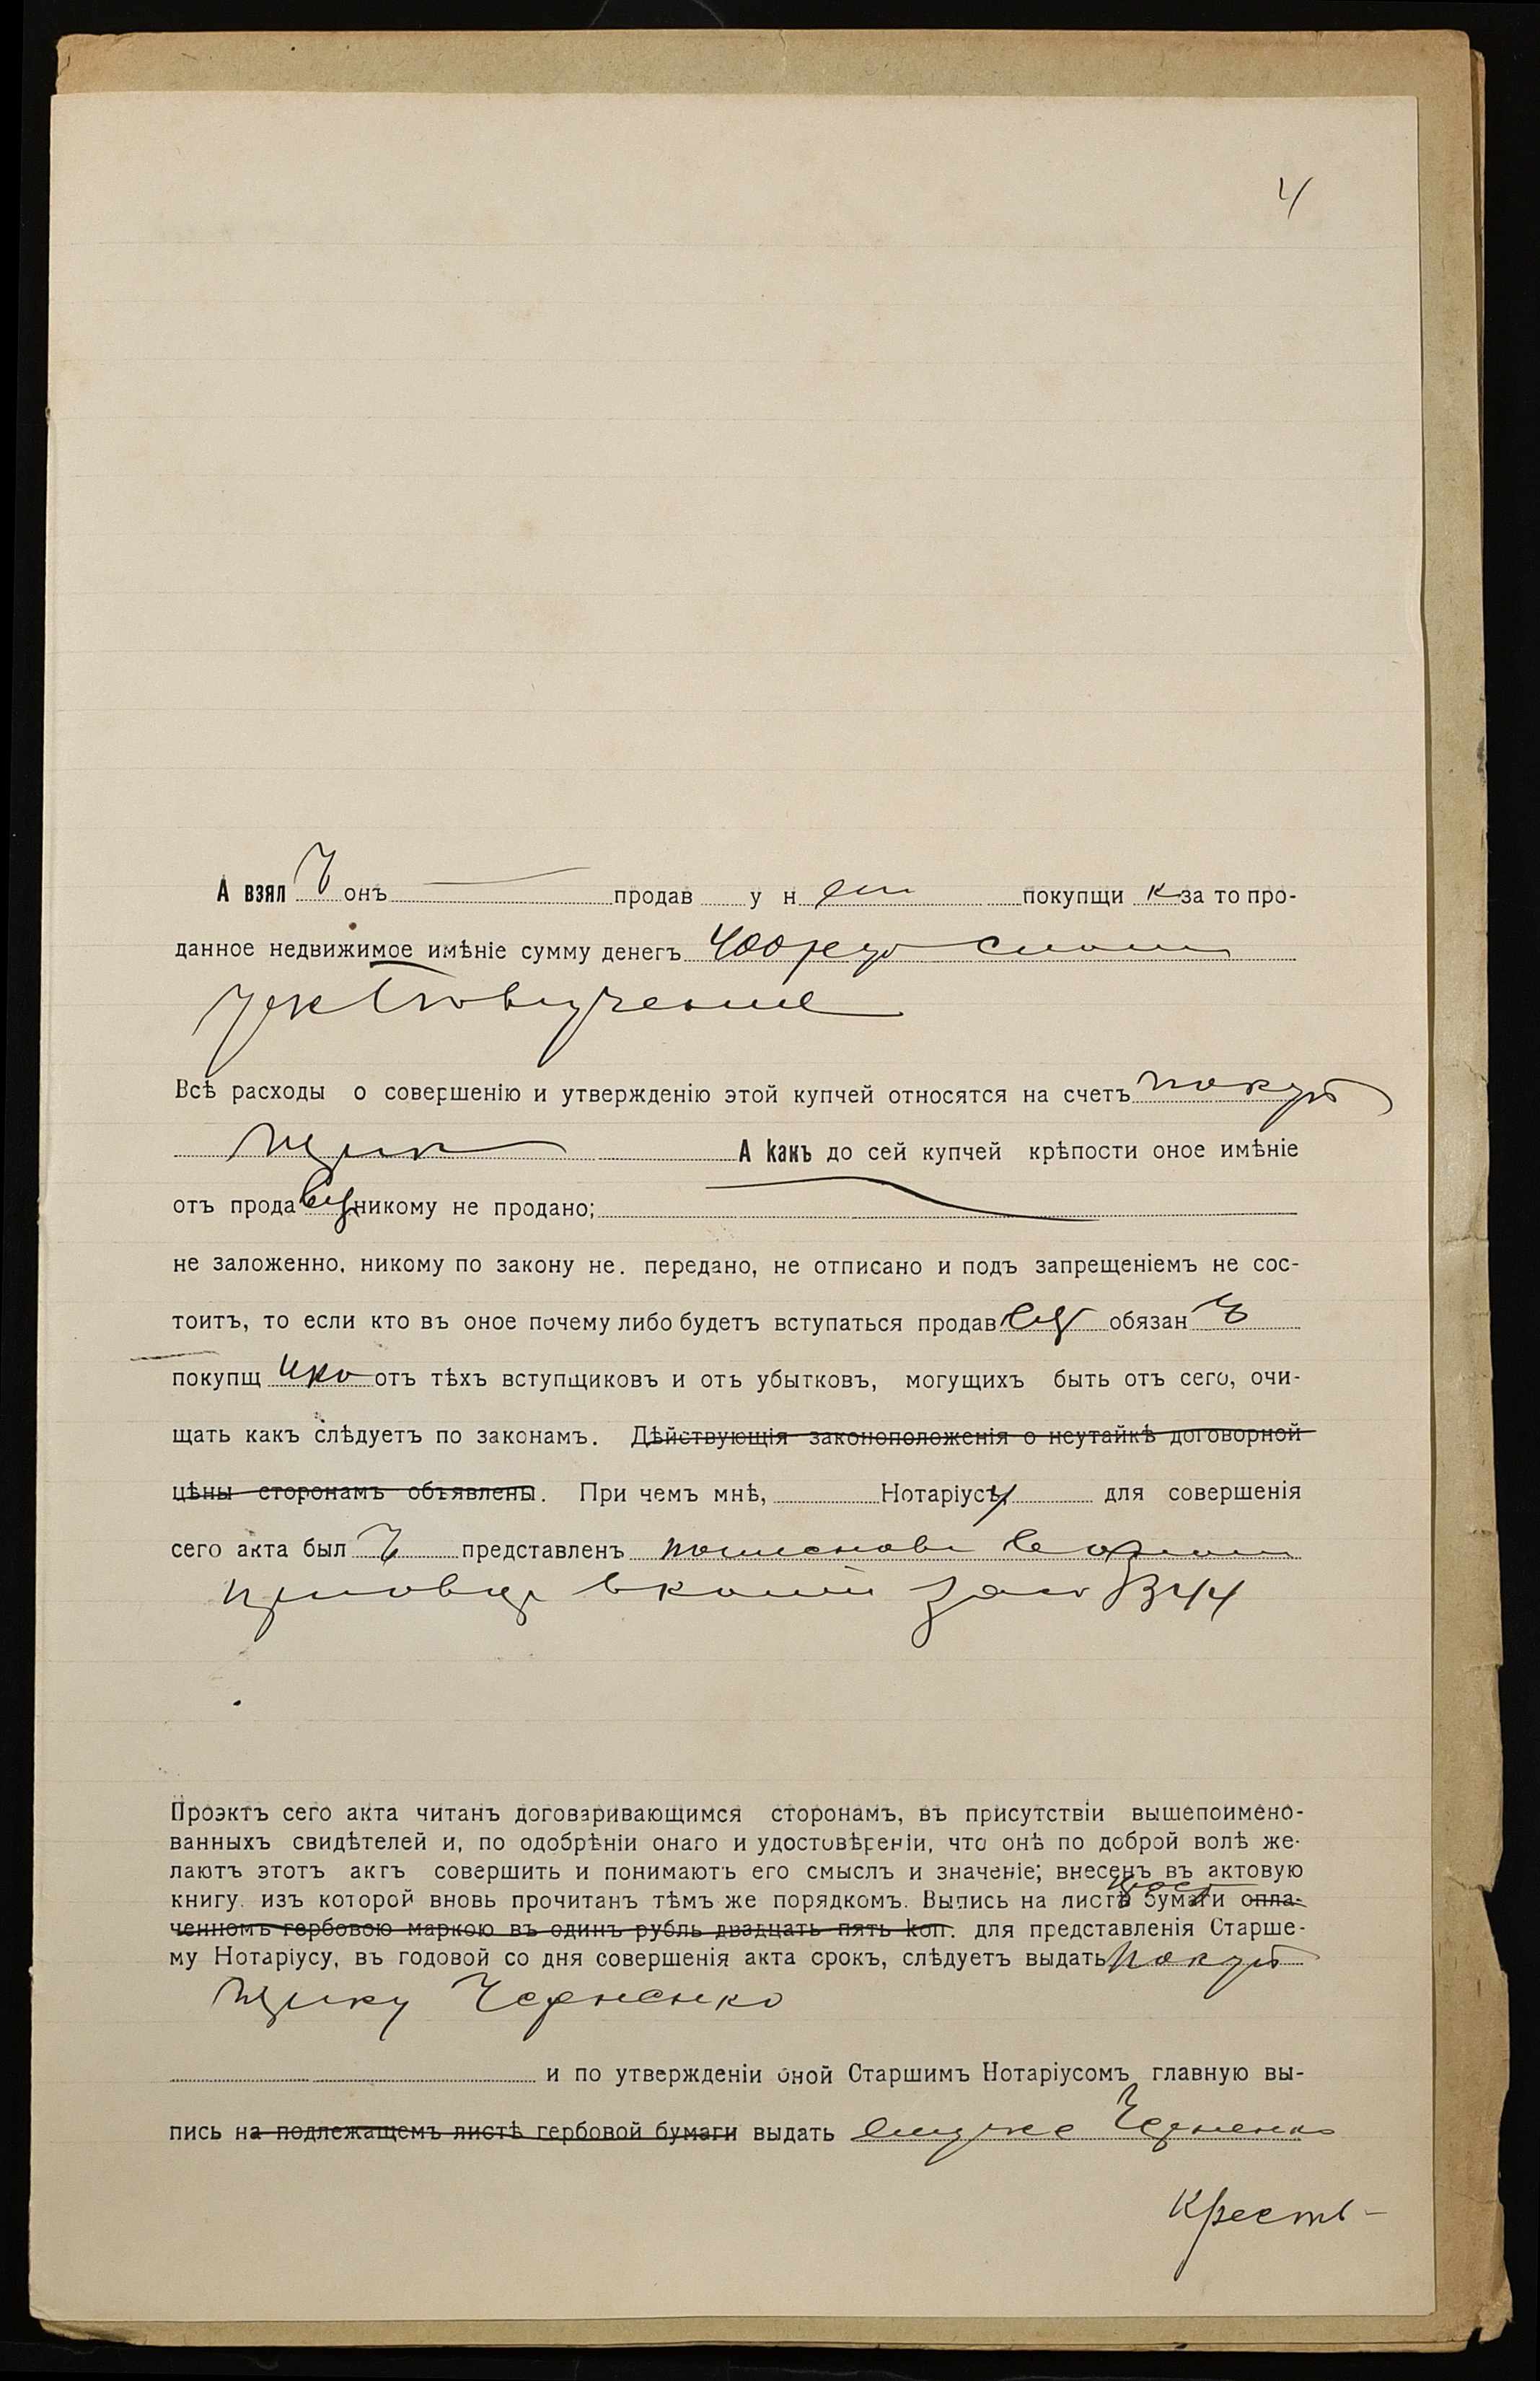 4
А взялъ онъ продав у н его покупщик за то про-
данное недвижимое имѣніе сумму денегъ 400 руб
Всѣ расходы о совершенію и утвержденію этой купчей относятся на счетъ покуп
щика А какъ до сей купчей крѣпости оное имѣніе
отъ продавца никому не продано;
не заложенно, никому по закону не. передано, не отписано и подъ запрещеніемъ не сос-
тоитъ, то если кто въ оное почему либо будетъ вступаться продавец обязанъ
покупщика отъ тѣхъ вступщиковъ и отъ убытковъ, могущихъ быть отъ сего, очи-
щать какъ слѣдуетъ по законамъ. Дѣйствующія законоположенія о неутайкѣ договорной
цѣны сторонамъ объявлены. При чемъ мнѣ, Нотаріусу, для совершенія
сего акта былъ представленъ
Проэктъ сего акта читанъ договаривающимся сторонамъ, въ присутствіи вышепоимено-
ванныхъ свидѣтелей и, по одобрѣніи онаго и удостовѣреніи, что онѣ по доброй волѣ же-
лаютъ этотъ актъ совершить и понимаютъ его смыслъ и значеніе; внесенъ въ актовую
книгу. изъ которой вновь прочитанъ тѣмъ же порядкомъ. Выпись на листѣ бумаги опла-
ченномъ гербовою маркою въ одинъ рубль двадцать пять коп. для представленія Старше-
му Нотаріусу, въ годовой со дня совершенія акта срокъ, слѣдуетъ выдать покуп
щику Черненко
и по утвержденіи оной Старшимъ Нотаріусомъ главную вы-
пись на подлежащемъ листѣ гербовой бумаги выдать ему же Черненко
Кресть-